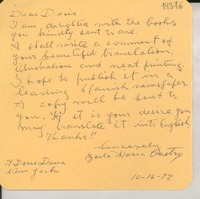 Dear Doris:
I am delighted with the books
you kindly sent me.
I shall write a comment of
your beautiful translation,
illustration and neat printing.
I hope to publish it in a
leading Spanish newspaper.
A copy will be sent to
you. If it is your desire you
may translate it into English
Thanks!!
Sincerely
A Doris Dana
New York
10-16-72